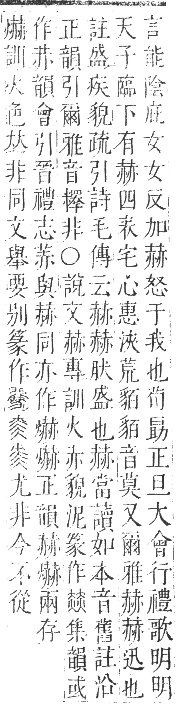 言能陰庇女女反加赫怒于我也荀勗正旦大會行禮歌明明
天子臨下有赫四表宅心惠浹荒貊貊音莫又爾雅赫赫迅也
註盛疾貌疏引詩毛傳云赫赫肰盛也赫當讀如本音舊註沿
正韻引爾雅音檡非○說文赫專訓火赤貌泥篆作赫集韻或
作䓇韻會引晉禮志䓇與赫同亦作爀爀正韻赫爀兩存
爀訓火色㚘非同文舉要別篆作尤非今不從